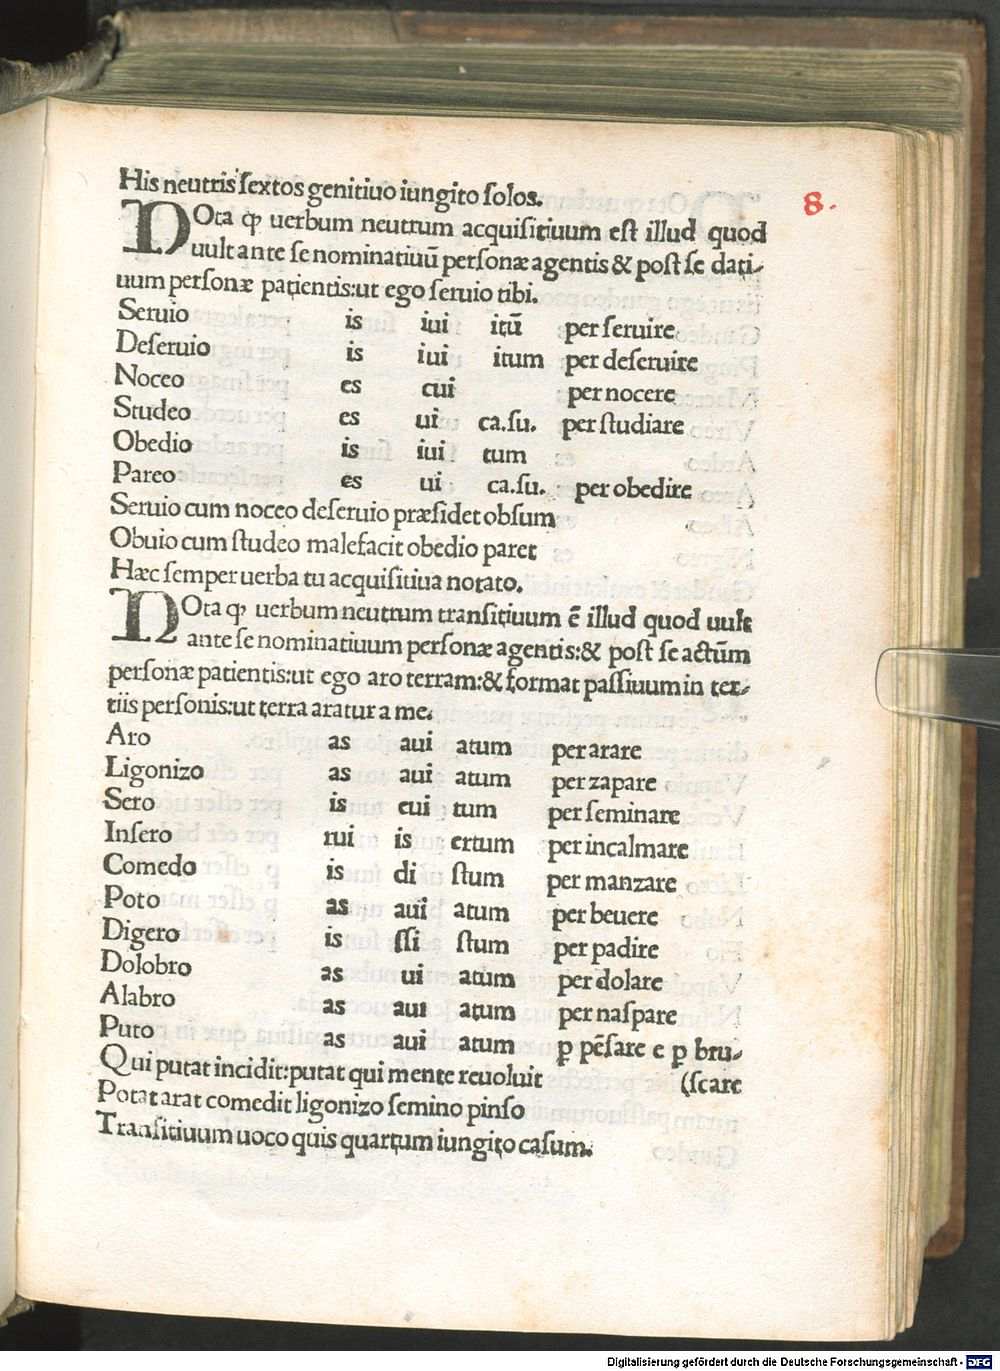 His neutris sextos genitiuo iungito solos.
8.
NOta ꝙ uerbum neutrum acquisitiuum est illud quod
uult ante se nominatiuū personæ agentis & post se dati-
uum personæ patientis:ut ego seruio tibi.
Seruio is iui itū per seruire
Deseruio is iui itum per deseruire
Noceo es cui per nocere
Studeo es ui ca.su. per studiare
Obedio is iui tum
Pareo es ui ca.su. per obedire
Seruio cum noceo deseruio præsidet obsum
Obuio cum studeo malefacit obedio paret
Hæc semper uerba tu acquisitiua notato.
NOta ꝙ uerbum neutrum transitiuum ē illud quod uult
ante se nominatiuum personæ agentis:& post se actūm
personæ patientis:ut ego aro terram:& format passiuum in ter-
tiis personis:ut terra aratur a me.
Aro as aui atum per arare
Ligonizo as aui atum per zapare
Sero is eui tum per seminare
Insero rui is ertum per incalmare
Comedo is di stum per manzare
Poto as aui atum per beuere
Digero is ssi stum per padire
Dolobro as ui atum per dolare
Alabro as aui atum per naspare
Puto as aui atum ꝑ pēsare e ꝑ bru-
Qui putat incidit:putat qui mente reuoluit (scare
Potat arat comedit ligonizo semino pinso
Transitiuum uoco quis quartum iungito casum.
Digitalisierung gefördert durch die Deutsche Forschungsgemeinschaft - DFG